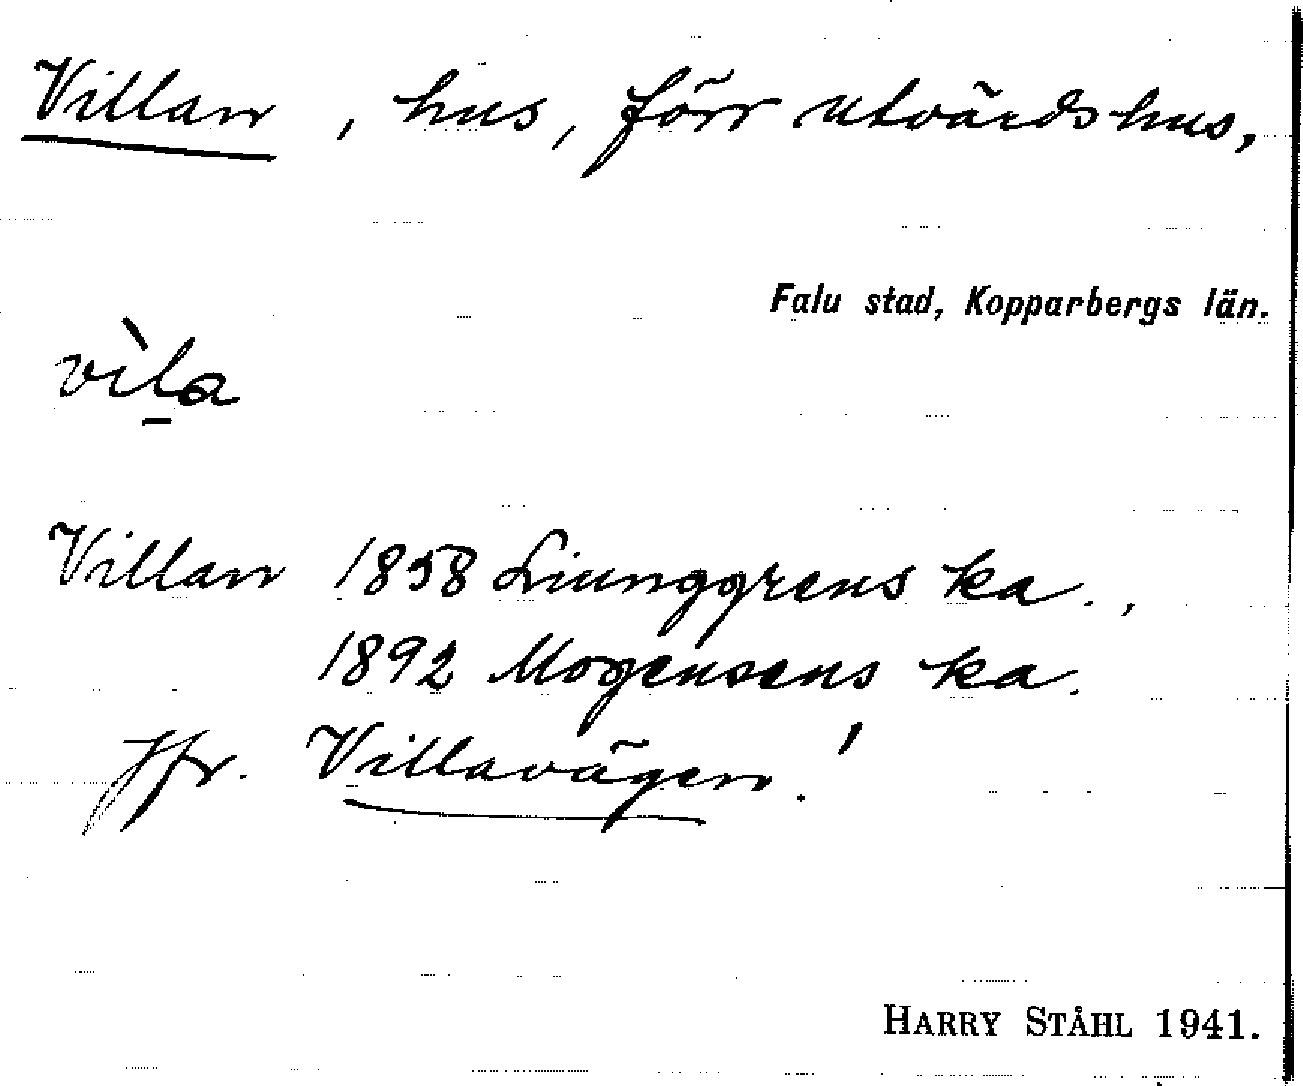 Villan, hus, förr utvärdshus,
Falu stad, Kopparbergs län.
vìl̠a
Villan 1858 Liunggrens ka.,
1892 Mogensens ka.
Jfr. Villavägen!
HARRY STÅHL 1941.